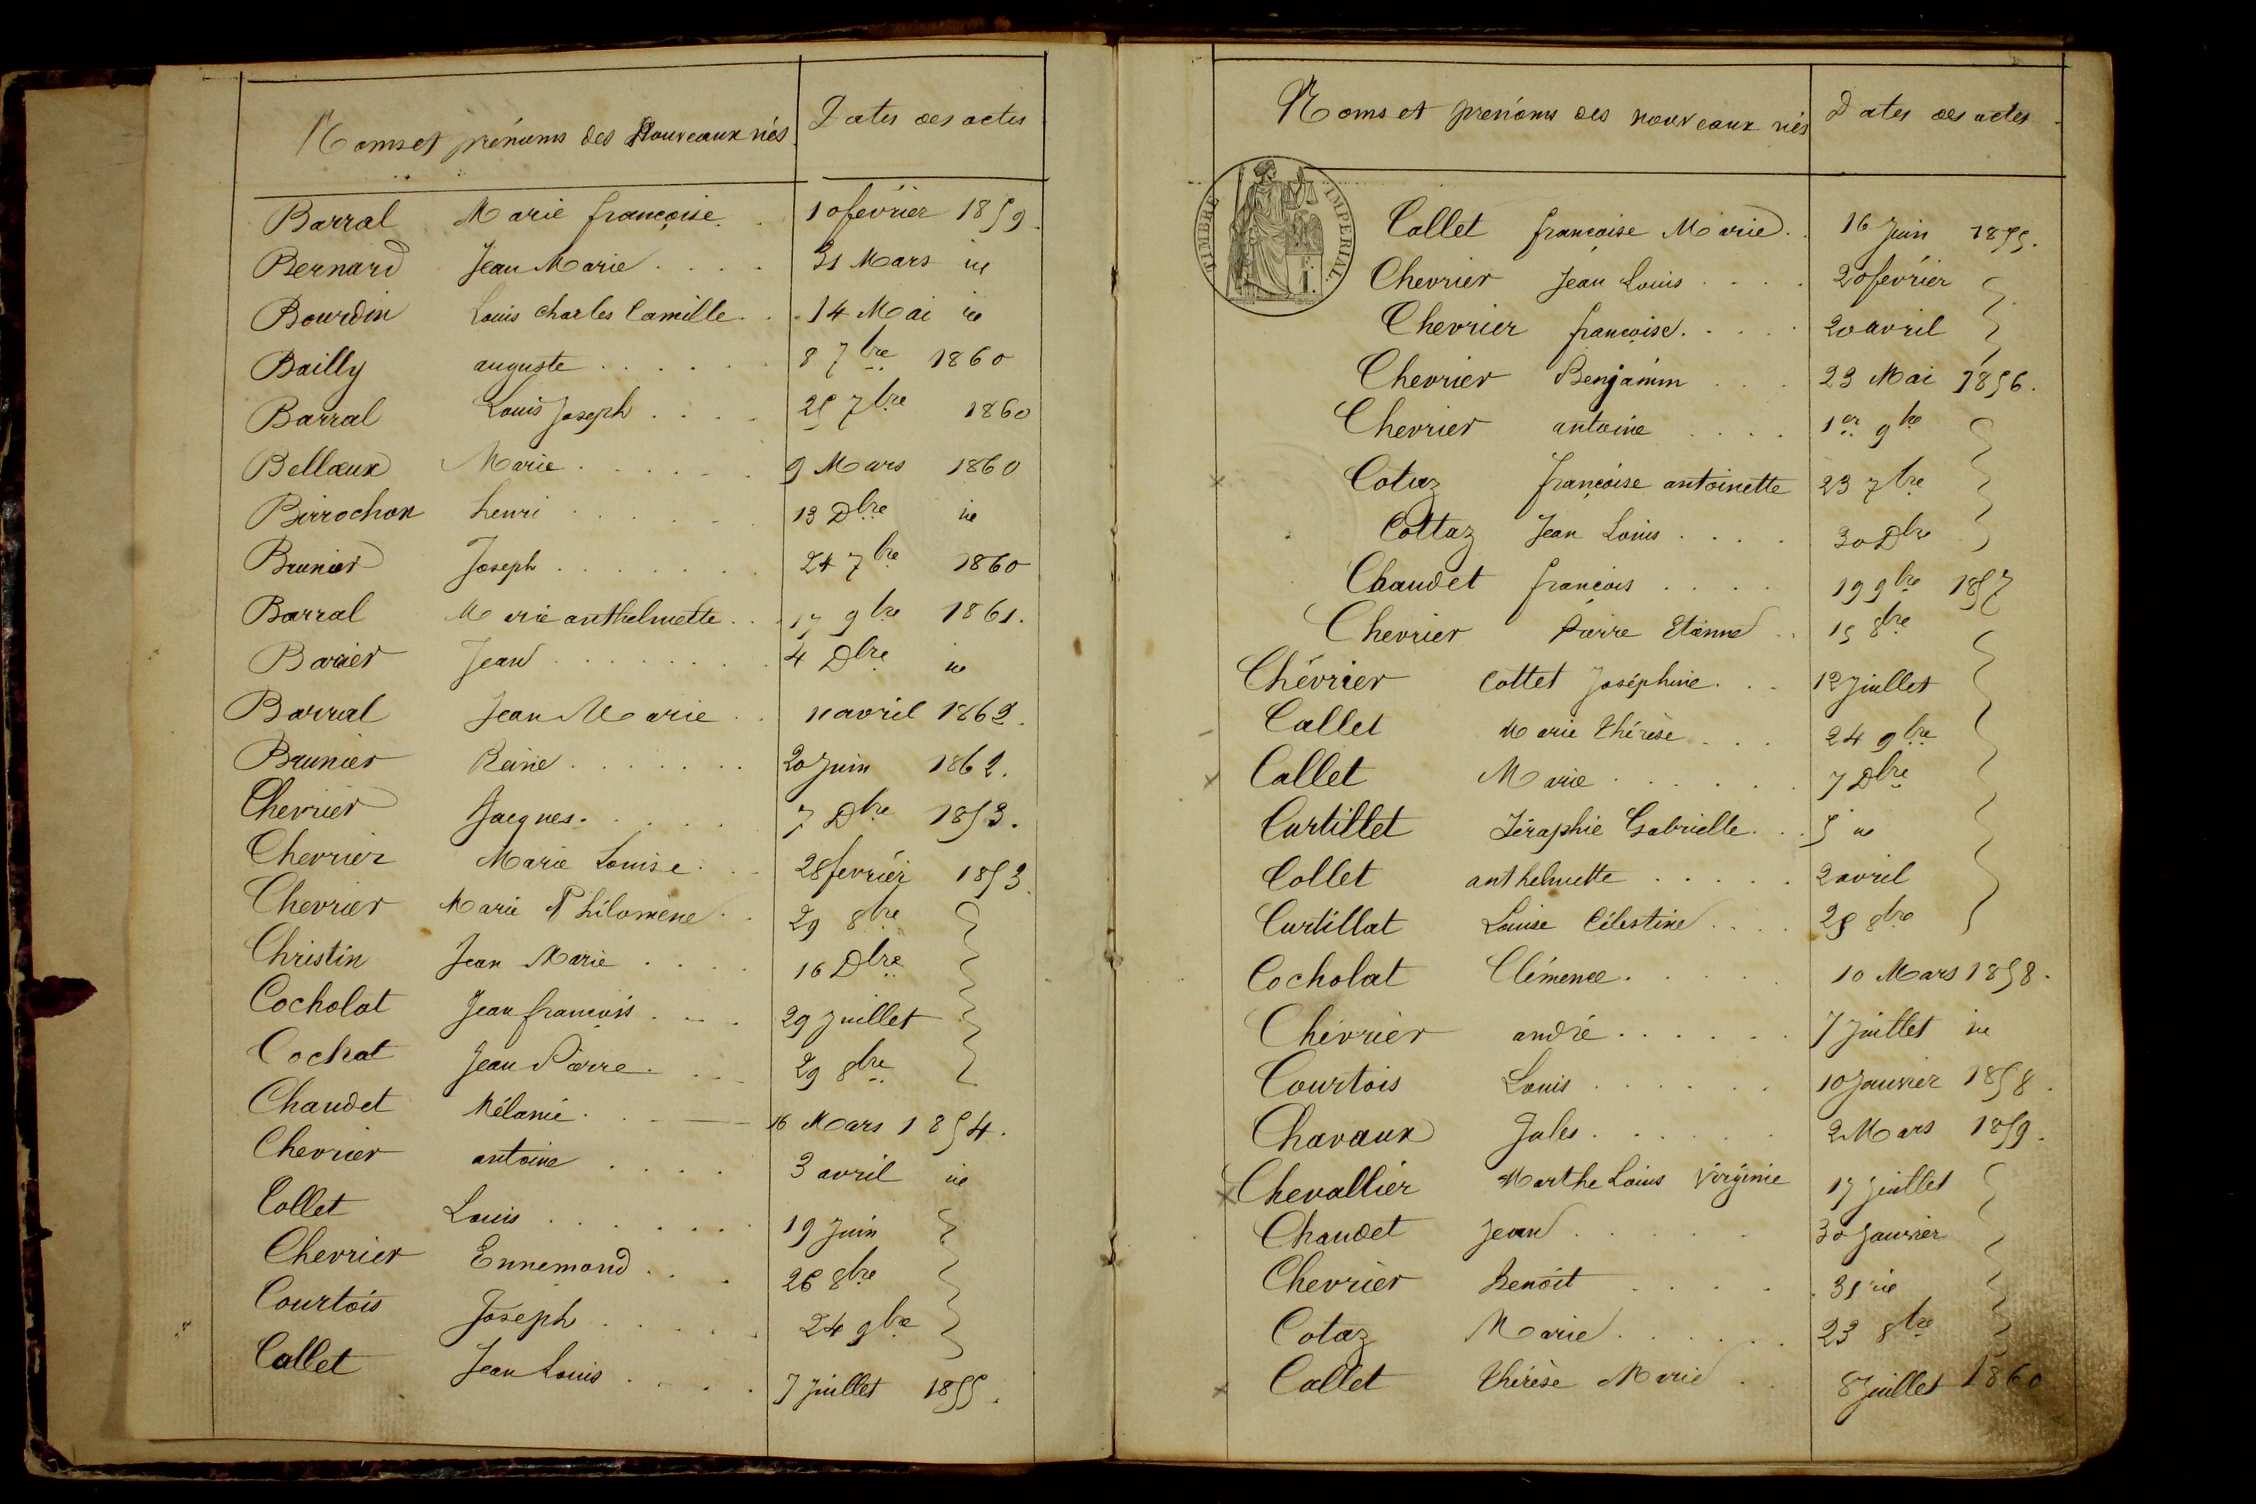 Noms et prénoms des Nouveaux nés Dates des actes
Barral Marie françoise . 10 février 1859.
Bernard Jean Marie . . . . 31 Mars id
Bourdin Louis Charles Camille . . 14 Mai id
Bailly auguste . . . . . . 8 7bre 1860
Barral Louis Joseph . . . . 25 7bre 1860
Bellaux Marie . . . . . . 9 Mars 1860
Birrochon henri . . . . . . 13 Dbre id
Brunier Joseph . . . . . . . 24 7bre 1860
Barral Marie anthelmette . . . 17 9bre 1861.
Barier Jean . . . . . . . . 4 Dbre id
Barral Jean Marie . . 11 avril 1862.
Brunier Reine . . . . . . . 20 Juin 1862.
Chevrier Jacques . . . . . . 7 Dbre 1853.
Chevrier Marie Louise . . . 28 fevrier 1853.
Chevrier Marie Philomène . . 29 8bre
Christin Jean Marie . . . . 16 Dbre
Cocholat Jean françois . . . . 29 Juillet
Cochat Jean Pierre . . . . 29 8bre
Chaudet Mélanie . . . 16 Mars 1854.
Chevrier antoine . . . . 3 avril id
Collet Louis . . . . . . . 19 Juin
Chevrier Ennemond . . . 26 8bre
Courtois Joseph . . . . . 24 9bre
Callet Jean Louis . . . . 7 Juillet 1855.
Noms et prénoms des nouveaux nés Dates des actes.
TIMBRE IMPERIAL.
Callet françoise Marie . . 16 Juin 1855.
Chevrier Jean Louis . . . . 20 février
Chevrier françoise . . . . . 20 avril
Chevrier Benjamin . . . 23 Mai 1856.
Chevrier antoine . . . . 1er 9bre
Cotaz françoise antoinette 23 7bre
Cottaz Jean Louis . . . . 30 Dbre
Chaudet françois . . . . 19 9bre 1857
Chevrier Pierre Etienne . . 15 8bre
Chévrier Cottet Joséphine . . . 12 Juillet
Callet Marie Thérèse . . . 24 9bre
Callet Marie . . . . . . 7 Dbre
Curtillet Séraphie Gabrielle . . . 5 id
Collet anthelmette . . . . . 2 avril
Curtillat Louise Célestine . . . . 25 8bre
Cocholat Clémence . . . . 10 Mars 1858.
Chevrier andré . . . . . . 7 Juillet id
Courtois Louis . . . . . . 10 Janvier 1858.
Chavaux Jules . . . . . . 2 Mars 1859.
Chevallier Marthe Louis Virginie 17 Juillet
Chaudet Jean . . . . . 30 Janvier
Chevrier Benoit . . . . . 31 id
Cotaz Marie . . . . . . 23 8bre
Callet Thérèse Marie . . 8 Juillet 1860